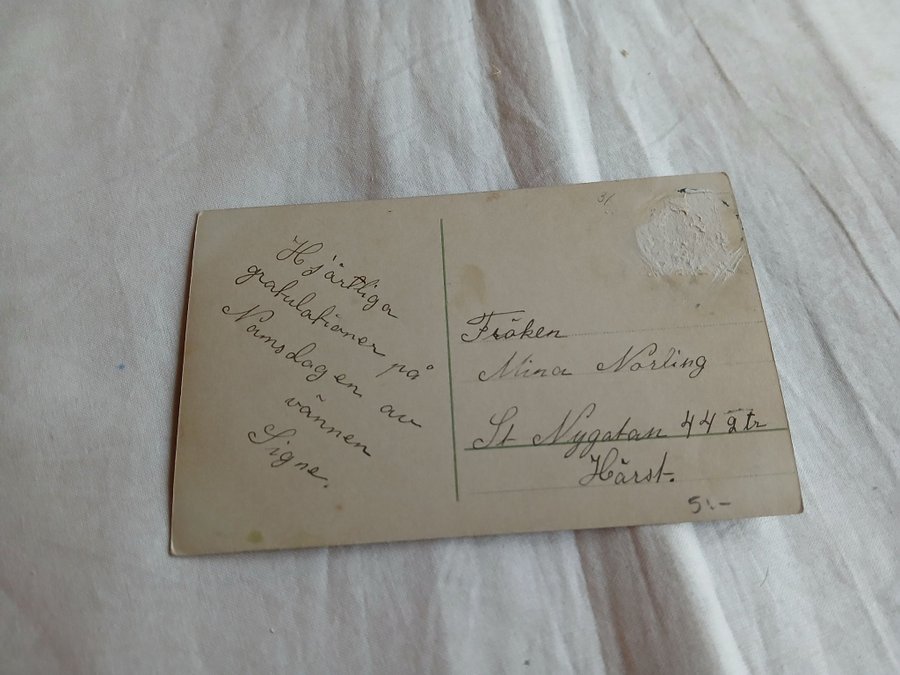 Hjärtliga
gratulationer på
Namsdagen av
vännen
Signe.
Fröken
Mina Norling
St Nygatan 44 2 tr
Härst.
5:-